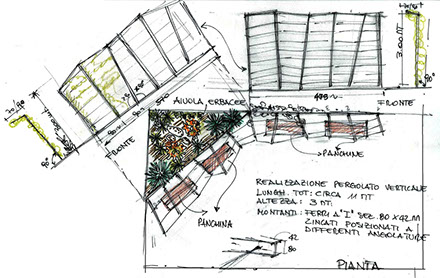 3.00 MT
570
495
FRONTE
AIUOLA ERBACEE
FRONTE
PANCHINE
PANCHINA
REALIZZAZIONE PERGOLATO VERTICALE
LUNGH. TOT: CIRCA 11 MT
ALTEZZA: 3 MT.
MONTANTI: FERRI A "I" SEZ. 80 X 42 M
ZINCATI POSIZIONATI A
DIFFERENTI ANGOLATURE
42
80
PIANTA